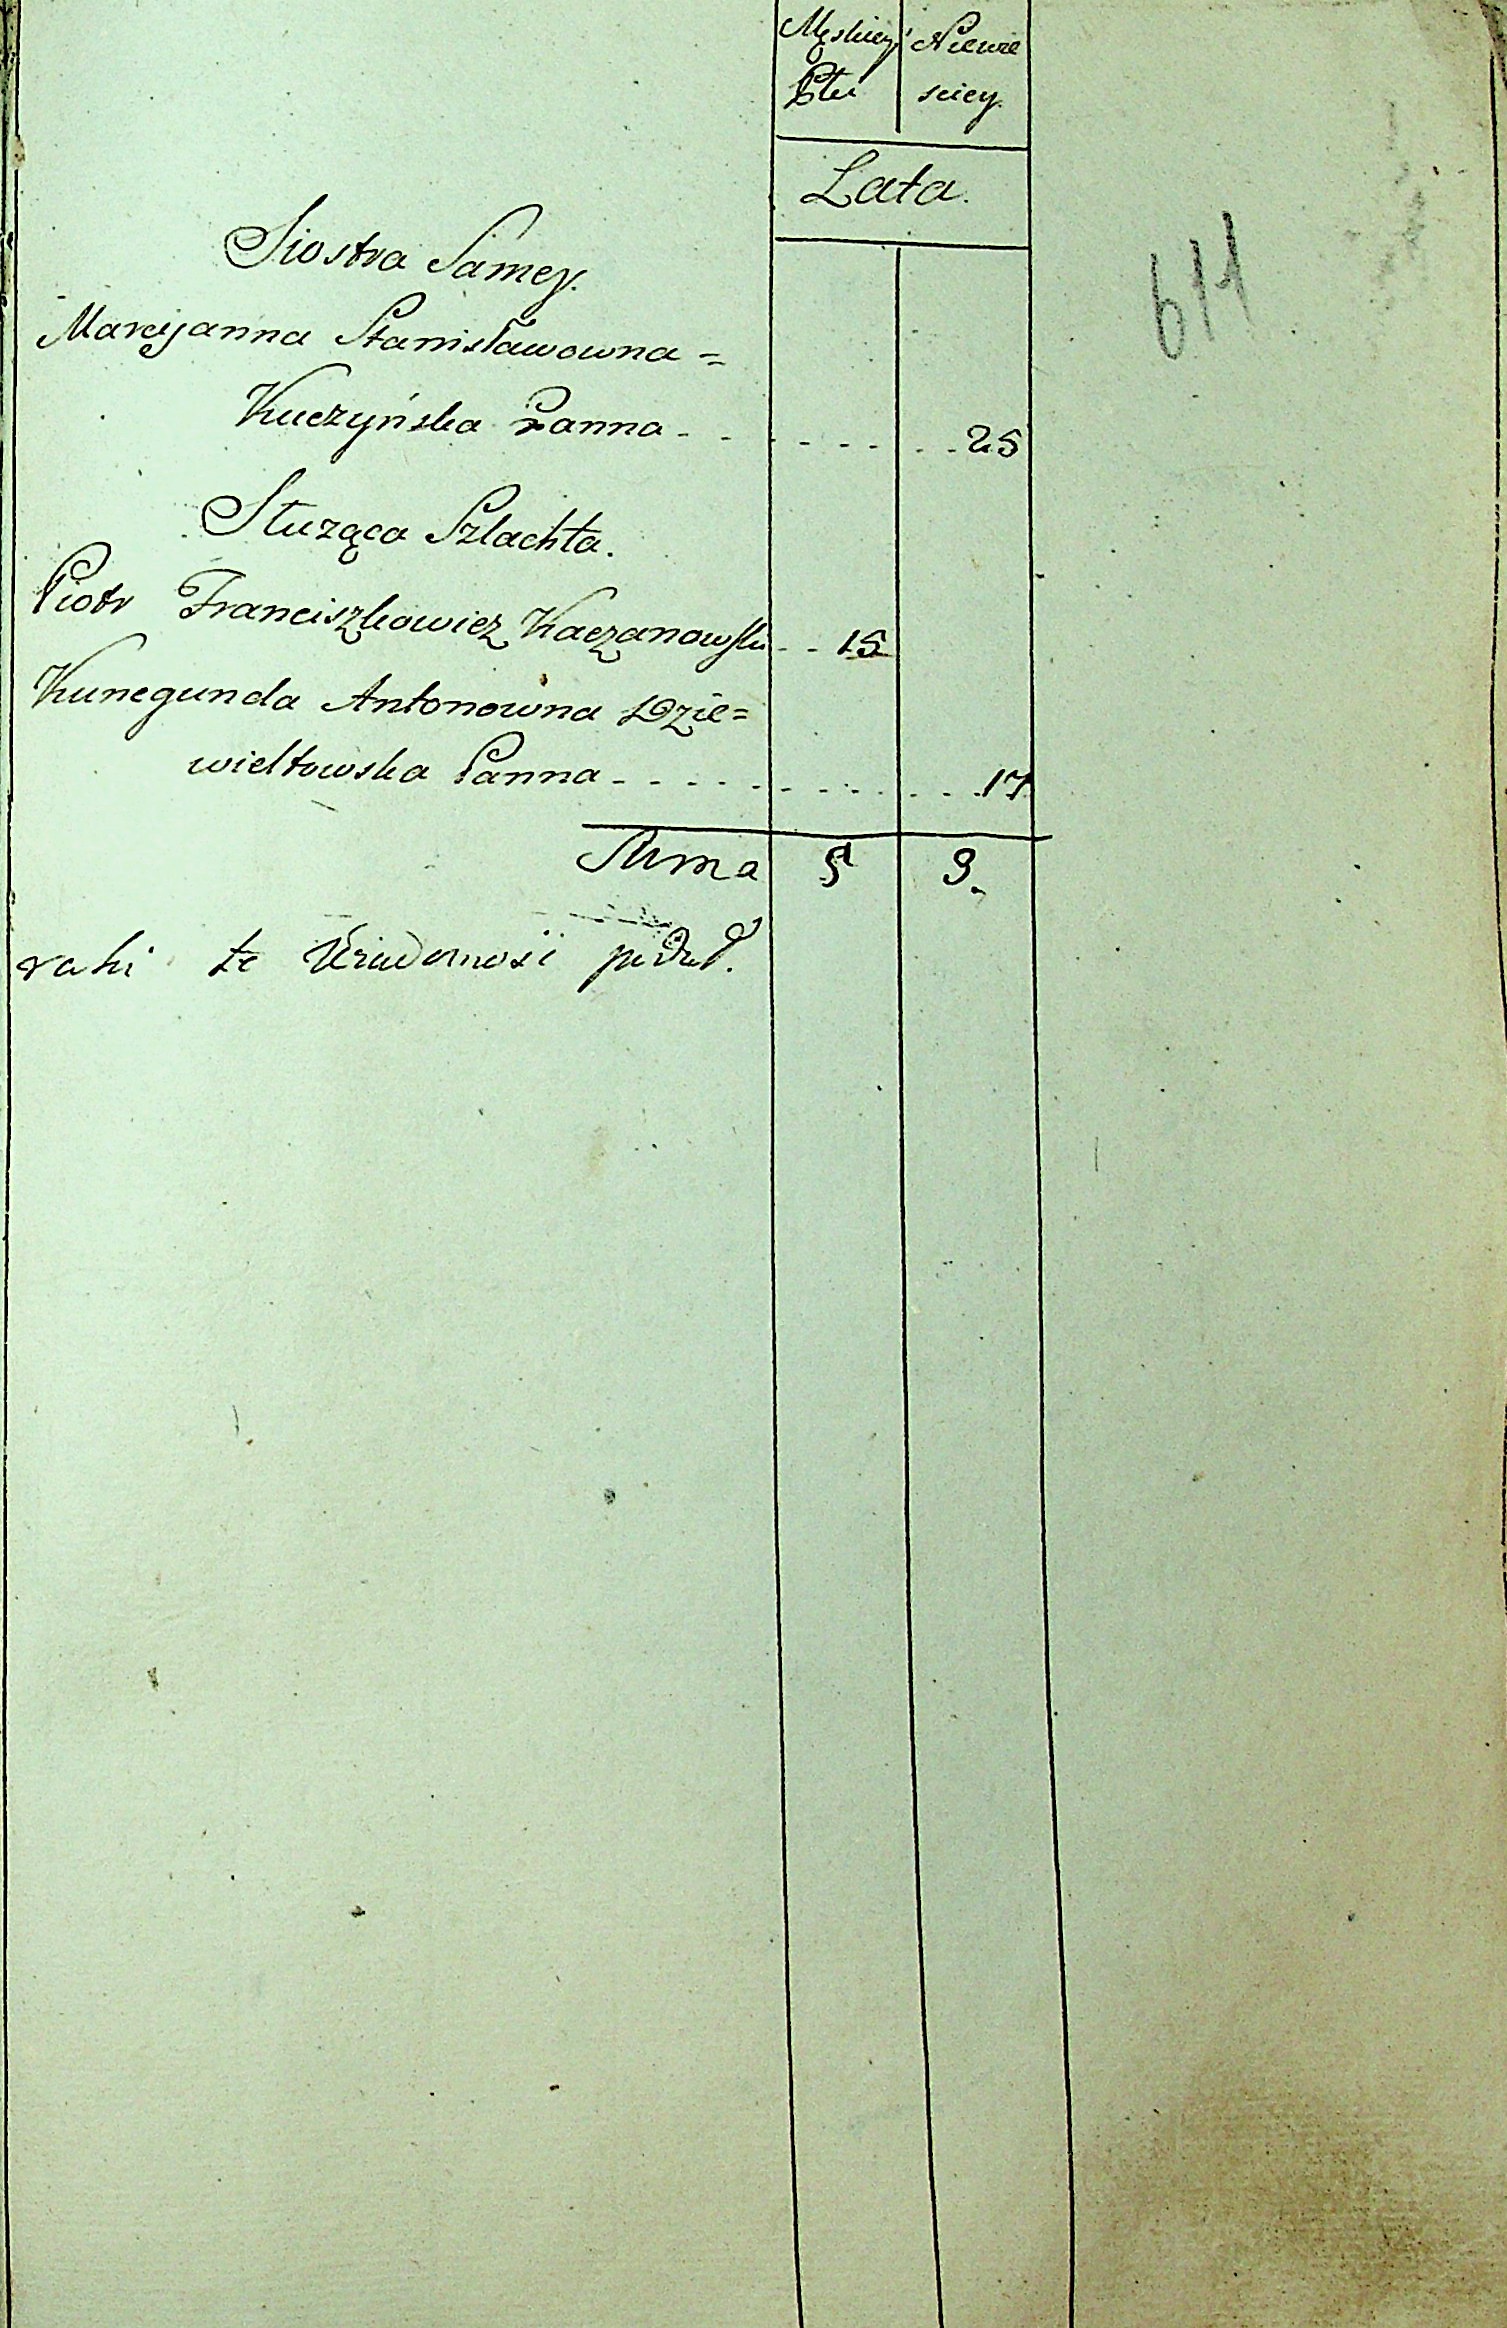 Męskiey Niewie
Płci sciey.
Lata.
611
Siostra Samey.
Maryjanna Stanisławowna =
Kuczyńska Panna - - - - - - - - 25
Służąca Szlachta.
Piotr Franciszkowicz Kaczanowski - - 15
Kunegunda Antonowna Dzie=
wiełtowska Panna - - - - - - - - - 17
Suma 5 9.
te Wiadomosi podał.